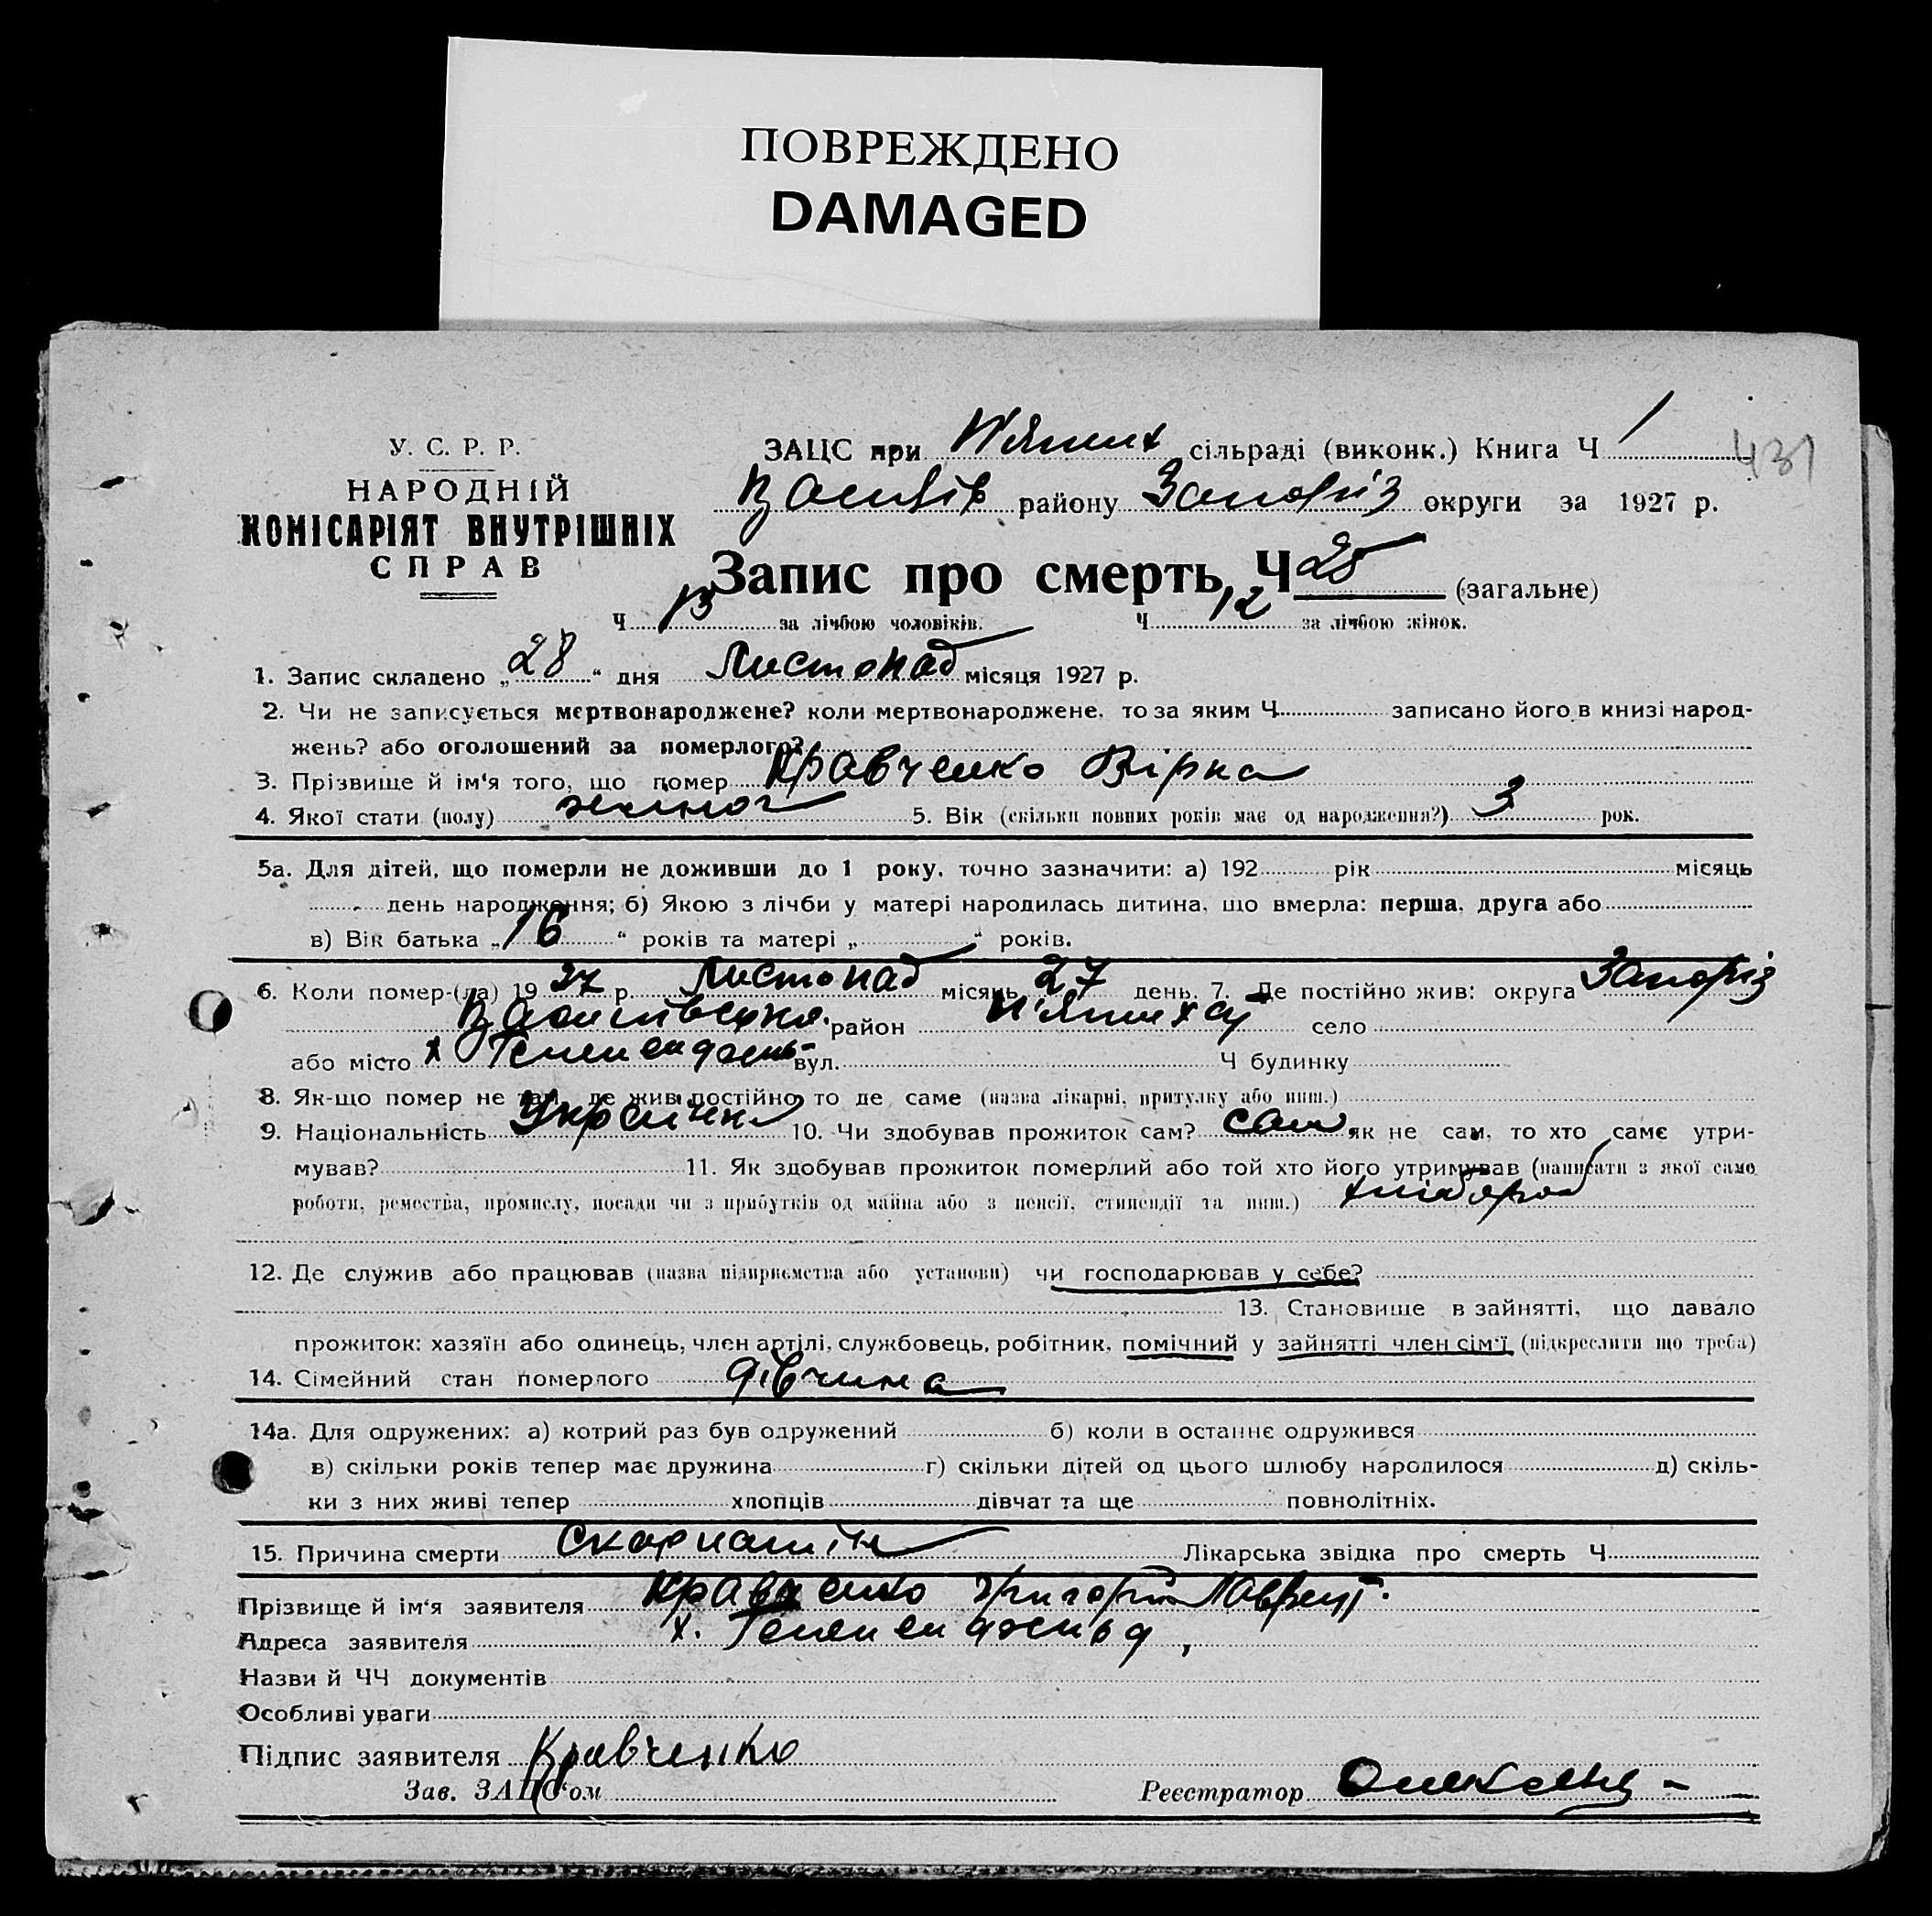 ПОВРЕЖДЕНО
DAMAGED
У. С. Р. Р.
НАРОДНІЙ
КОМІСАРІЯТ ВНУТРІШНІХ
СПРАВ
ЗАЦС при П'ятих сільраді (виконк.) Книга Ч 1
431
Василів району Запоріз округи за 1927 р.
Запис про смерть Ч 25 (загальне)
Ч 13 за лічбою чоловіків. Ч 12 за лічбою жінок.
1. Запис складено „28“ дня Листопад місяця 1927 р.
2. Чи не записується мертвонароджене? коли мертвонароджене, то за яким Ч записано його в книзі народ-
жень? або оголошений за померлого?
3. Прізвище й ім‘я того, що помер Кравченко Вірка
4. Якої стати (полу) жіноч 5. Вік (скільки повних років має од народження?) 3 рок.
5а. Для дітей, що померли не доживши до 1 року, точно зазначити: а) 192 рік місяць
день народження; б) Якою з лічби у матері народилась дитина, що вмерла: перша, друга або
в) Вік батька „16“ років та матері „ “ років.
6. Коли помер-(ла) 1927 р. Листопад місяць 27 день. 7. Де постійно жив: округа Запоріз
Василівська район П'ятихат село
або місто х вул. Ч будинку
8. Як-що помер не там, де жив постійно то де саме (назва лікарні, притулку або инш.)
9. Національність Українк 10. Чи здобував прожиток сам? сам як не сам, то хто саме утри-
мував? 11. Як здобував прожиток померлий або той хто його утримував (написати з якої саме
роботи, ремества, промислу, посади чи з прибутків од майна або з пенсії, стипендії та инш.) хлібороб
12. Де служив або працював (назва підприємства або установи) чи господарював у себе?
13. Становище в зайнятті, що давало
прожиток: хазяїн або одинець, член артілі, службовець, робітник, помічний у зайнятті член сім‘ї (підкреслити що треба)
14. Сімейний стан померлого дівчина
14а. Для одружених: а) котрий раз був одружений б) коли в останнє одружився
в) скільки років тепер має дружина г) скільки дітей од цього шлюбу народилося д) скіль-
ки з них живі тепер хлопців дівчат та ще повнолітніх.
15. Причина смерти Скарлатін Лікарська звідка про смерть Ч
Прізвище й ім‘я заявителя Кравченко Григорій Лаврент.
Адреса заявителя х.
Назви й ЧЧ документів
Особливі уваги
Підпис заявителя Кравченко
Зав. ЗАЦС‘ом Реєстратор